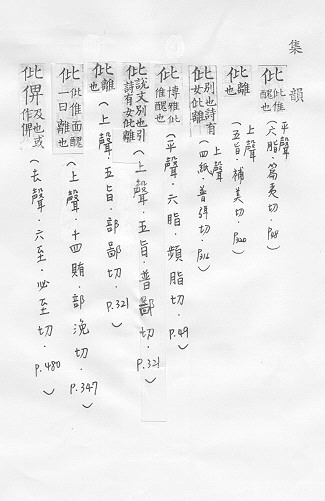 集韻
仳仳倠醜也(平聲 六脂.篇夷切.P48)
仳離也(上聲 五旨.補美切.P320)
仳別也詩有女仳離(上聲 四紙.普弭切.P316)
仳博雅仳倠醜也(平聲.六脂.頻脂切.P.49)
仳說文別也引詩有女仳離(上聲.五旨.普鄙切.P.321)
仳離也(上聲.五旨.部鄙切.P.321)
仳仳倠面醜一曰離也(上聲.十四賄.部浼切.P.347)
仳俾及也或作俾(去聲.六至.必至切.P.480)